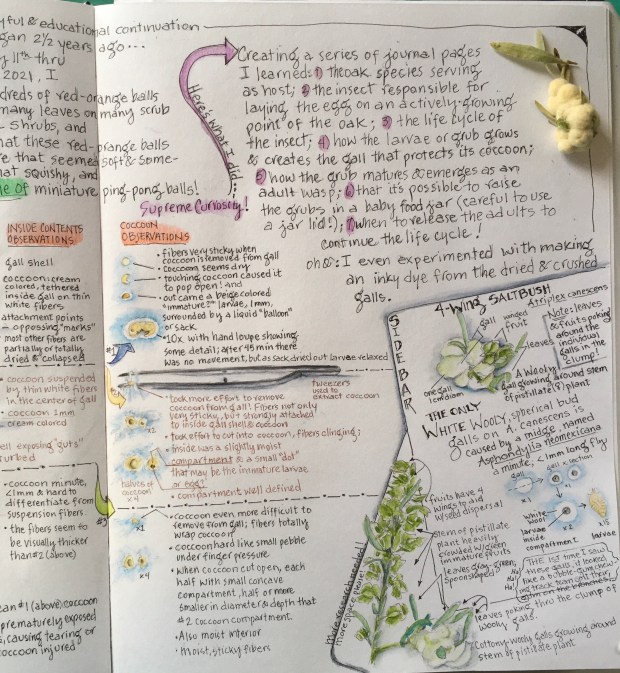 yful & educational continuation
gan 2½ years ago...
y 11th thru
2021, I
dreds of red-orange balls
many leaves on many scrub
- shrubs, and
hat these red-orange balls
e that seemed soft & some-
hat squishy, and
le of miniature ping-pong balls!
Here's what I did...
Supreme Curiosity!
Creating a series of journal pages
I learned: 1) the oak species serving
as host; 2) the insect responsible for
laying the egg on an actively-growing
point of the oak; 3) the life cycle of
the insect; 4) how the larvae or grub grows
& creates the gall that protects its cocoon;
5) how the grub matures & emerges as an
adult wasp; 6) that it's possible to raise
the grubs in a baby food jar (careful to use
a jar lid!); 7) when to release the adults to
continue the life cycle!
oh &: I even experimented with making
an inky dye from the dried & crushed
galls.
INSIDE CONTENTS
OBSERVATIONS
gall shell
cocoon: cream
colored, tethered
inside gall on thin
white fibers
attachment points
- opposing "marks"
most other fibers are
partially or totally
dried & collapsed
• cocoon suspended
by thin white fibers
in the center of gall
• cocoon 2mm
cream colored
ell exposing "guts"
turbed
• cocoon minute,
<1mm & hard to
differentiate from
suspension fibers.
• the fibers seem to
be visually thicker
than #2 (above)
ean #1 (above) cocoon
prematurely exposed
s, causing tearing or
cocoon injured
COCOON
OBSERVATIONS
• fibers very sticky when
cocoon is removed from gall
• cocoon seems dry
• touching cocoon caused it
to pop open! and
• out came a beige colored
"immature?" larvae, 1mm,
surrounded by a liquid "balloon"
or sack.
• 10x with hand loupe showing
some detail; after 45 min there
was no movement, but as sack dried out larvae relaxed
#1
tweezers
used to
extract cocoon
• took more effort to remove
cocoon from gall! Fibers not only
very sticky, but strongly attached
to inside gall shell & cocoon
• took effort to cut into cocoon, fibers clinging;
• inside was a slightly moist
compartment & a small "dot"
that may be the immature larvae
or egg?
• compartment well defined
x2
halves of
cocoon
x4
#3
x1
x4
• cocoon even more difficult to
remove from gall; fibers totally
wrap cocoon
• cocoon hard like small pebble
under finger pressure
• When cocoon cut open, each
half with small concave
compartment, half or more
smaller in diameter & depth that
#2 cocoon compartment.
• Also moist interior
• moist, sticky fibers
SIDEBAR
4-Wing SALTBUSH
Atriplex canescens
gall
winged
fruit
leaves
Note: leaves
& fruits poking
around the
individual
galls in the
clump!
one gall
A Wooly
gall growing around stem
of pistillate (♀) plant
THE ONLY
WHITE WOOLY, spherical bud
galls on A. canescens is
caused by a midge, named
Asphondylia neomexicana
a minute, <1mm long fly
gall x-section
white
wool
larvae
inside
compartment
x1
x2
x15
larvae
fruits have 4
wings to aid
w/seed dispersal
stem of pistillate
plant heavily
crowded w/olden
immature fruits
leaves gray-green,
spoonshaped
Ha!
Ha!
THE LAST time I saw
these galls, it looked
like a bubble-gum chew-
ing track team spit their
gum on the branches!
leaves poking thru the clump of
wooly galls.
Cottony-wooly galls growing around
stem of pistillate plant
more research needed!
more space needed!